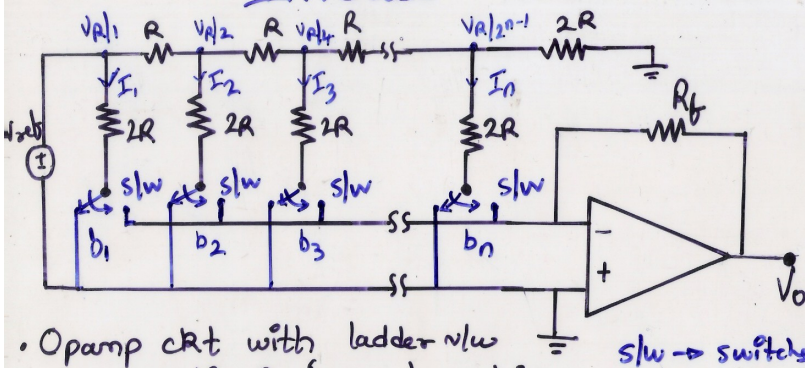 VR/1 R VR/2 R VR/4 R VR/2ⁿ⁻¹ 2R
I1 I2 I3 In
2R 2R 2R 2R
Rf
S/W S/W S/W S/W
b1 b2 b3 bn
−
+
Vo
• Opamp ckt with ladder n/w
S/W → switch